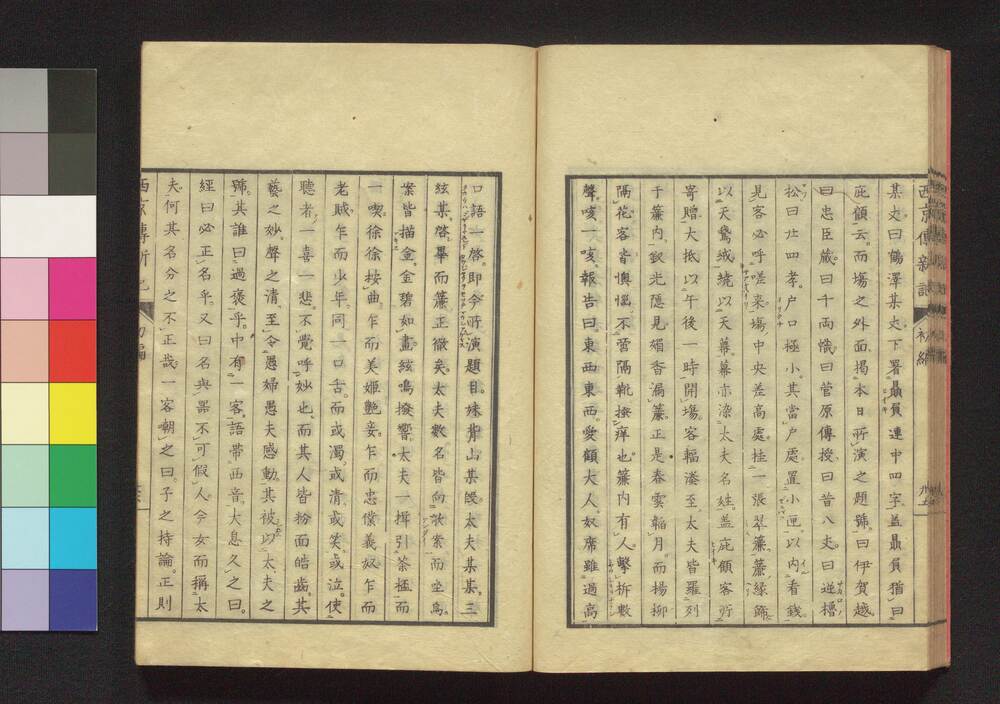 某丈曰鶴澤某丈下署贔負連中四字蓋贔負猶曰
庇顧云而塲之外面揭本日所演之題號曰伊賀越
曰忠臣藏曰千両幟曰菅原傳授曰昔八丈曰逆櫓
松曰廿四孝戶口極小其當戶處置小匣以内看錢
見客必呼嗟來塲中央差高處挂一張翠簾簾緣飾
以天鵞絨繞以天幕幕亦染太夫名姓蓋庇顧客所
寄贈大抵以午後一時開塲客輻湊至太夫皆羅列
于簾内釵光隱見媚香漏簾正是春雲韜月而楊柳
隔花客皆懊惱不啻隔靴搔痒也簾内有人擊柝數
聲咳一咳報告曰東西東西愛顧大人奴席雖過高
口語一啓即今所演題目妹背山某段太夫某某三
絃某啓畢而簾正徹矣太夫數名皆向歌案而坐焉
案皆描金金碧如畫絃鳴撥響太夫一揖引茶椀而
一喫徐徐按曲乍而美姬艷妾乍而忠僕義奴乍而
老賊乍而少年同一口舌而或濁或清或笑或泣使
聽者一喜一悲不覺呼妙也而其人皆粉面皓齒其
藝之妙聲之清至令愚婦愚夫感動其被以太夫之
號其誰曰過褒乎中有一客語帶西音大息久之曰
經曰必正名乎又曰名與器不可假人今女而稱太
夫何其名分之不正哉一客嘲之曰子之持論正則
西京傳新記 初編